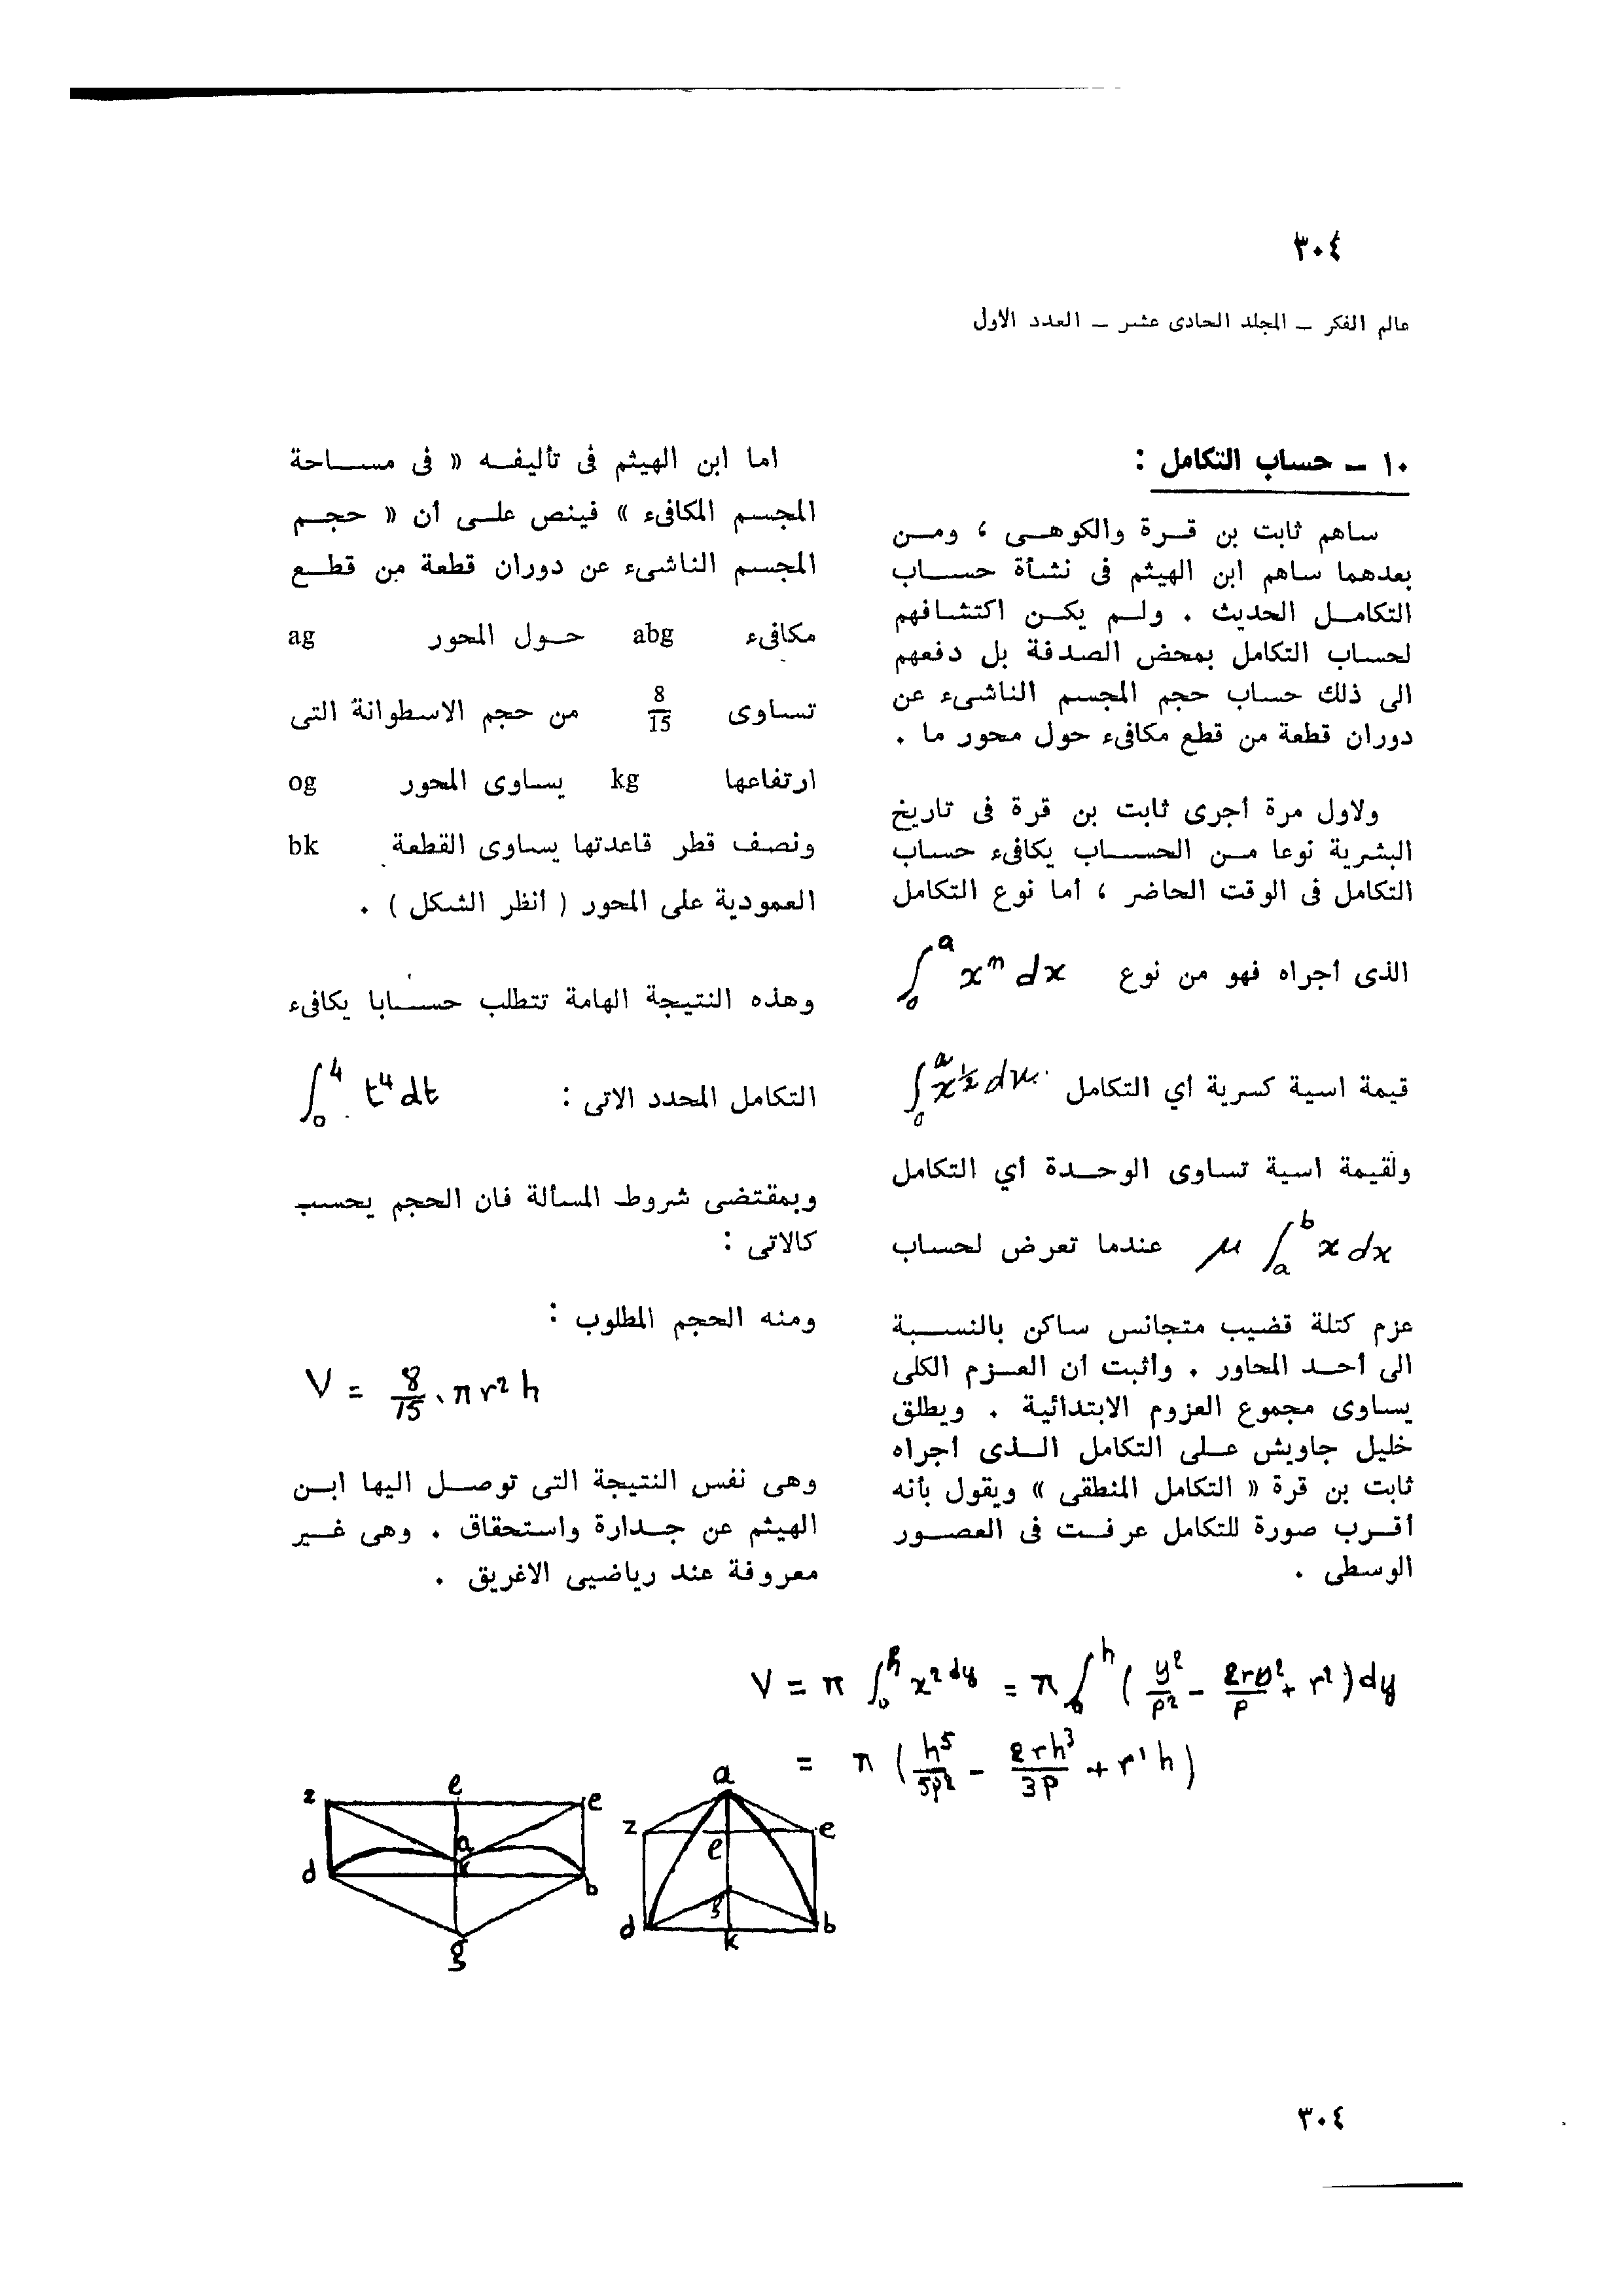 ٣٠٤
عالم الفكر – المجلد الحادى عشر – العدد الاول
١٠ – حساب التكامل :
ساهم ثابت بن قرة والكوهى ، ومن
بعدهما ساهم ابن الهيثم فى نشأة حساب
التكامل الحديث . ولم يكن اكتشافهم
لحساب التكامل بمحض الصدفة بل دفعهم
الى ذلك حساب حجم المجسم الناشىء عن
دوران قطعة من قطع مكافىء حول محور ما .
ولاول مرة أجرى ثابت بن قرة فى تاريخ
البشرية نوعا من الحساب يكافىء حساب
التكامل فى الوقت الحاضر ، أما نوع التكامل
الذى أجراه فهو من نوع ∫₀ᵃ xⁿ dx
قيمة اسية كسرية أي التكامل ∫₀ᵃ x^½ dx
ولقيمة اسية تساوى الوحدة أي التكامل
μ ∫ₐᵇ x dx عندما تعرض لحساب
عزم كتلة قضيب متجانس ساكن بالنسبة
الى أحد المحاور . وأثبت أن العزم الكلى
يساوى مجموع العزوم الابتدائية . ويطلق
خليل جاويش على التكامل الذى أجراه
ثابت بن قرة « التكامل المنطقى » ويقول بأنه
أقرب صورة للتكامل عرفت فى العصور
الوسطى .
اما ابن الهيثم فى تأليفه « فى مساحة
المجسم المكافىء » فينص على أن « حجم
المجسم الناشىء عن دوران قطعة من قطع
مكافىء abg حول المحور ag
تساوى 8/15 من حجم الاسطوانة التى
ارتفاعها kg يساوى المحور og
ونصف قطر قاعدتها يساوى القطعة bk
العمودية على المحور ( أنظر الشكل ) .
وهذه النتيجة الهامة تتطلب حسابا يكافىء
التكامل المحدد الاتى : ∫₀⁴ t⁴ dt
وبمقتضى شروط المسألة فان الحجم يحسب
كالاتى :
ومنه الحجم المطلوب :
V = 8/15 . π r² h
وهى نفس النتيجة التى توصل اليها ابن
الهيثم عن جدارة واستحقاق . وهى غير
معروفة عند رياضيى الاغريق .
V = π ∫₀ʰ x² dy = π ∫₀ʰ ( y²/p² - 2ry²/p + r² ) dy
= π ( h⁵/5p² - 2rh³/3p + r¹ h )
z e e
a
k
d b
g
a
z e
e
g
d b
k
٣٠٤